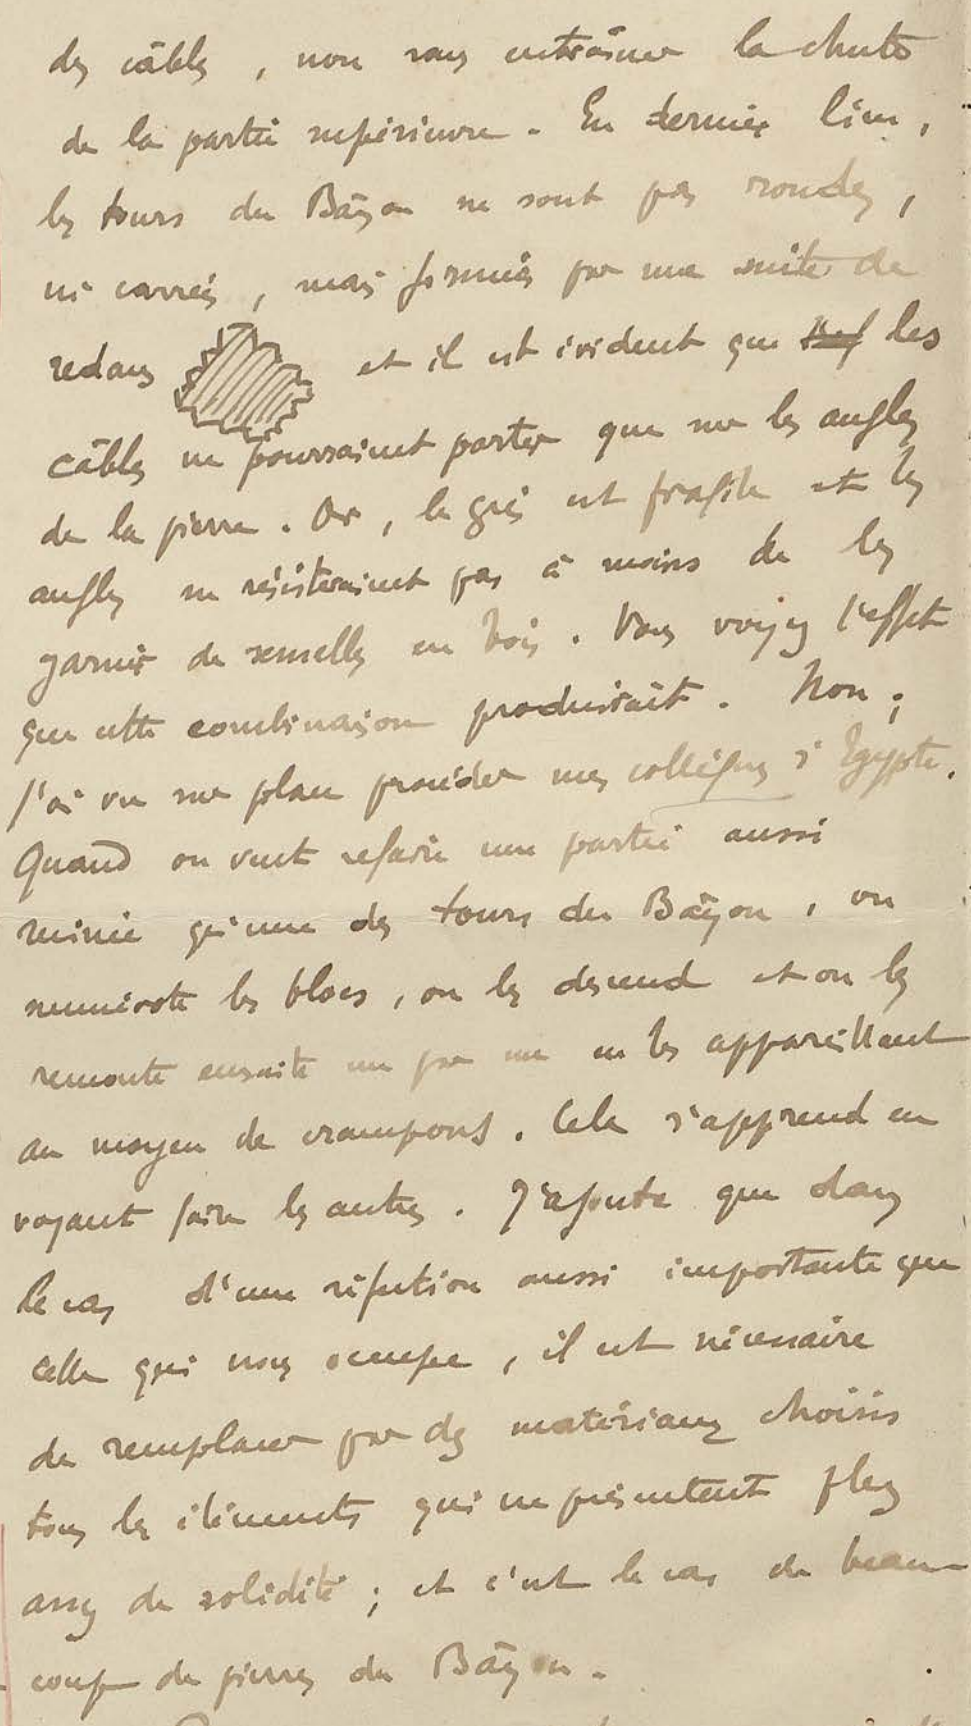 des câbles, non sans entraîner la chute
de la partie supérieure. En dernier lieu,
les tours du Bàyon ne sont pas rondes,
ni carrées, mais formées par une suite de
redans et il est évident que les
câbles ne pourraient porter que sur les angles
de la pierre. Or, le grès est fragile et les
angles ne résisteraient pas à moins de les
garnir de semelles en bois. Vous voyez l'effet
que cette combinaison produirait. Non ;
j'ai vu sur place procéder mes collègues d'Egypte.
Quand on veut refaire une partie aussi
ruinée qu'une des tours du Bàyon, on
numérote les blocs, on les descend et on les
remonte ensuite un par un en les appareillant
au moyen de crampons. Cela s'apprend en
voyant faire les autres. J'ajoute que dans
le cas d'une réfection aussi importante que
celle qui nous occupe, il est nécessaire
de remplacer par des matériaux choisis
tous les éléments qui ne présentent plus
assez de solidité ; et c'est le cas de beau-
coup de pierres du Bàyon.